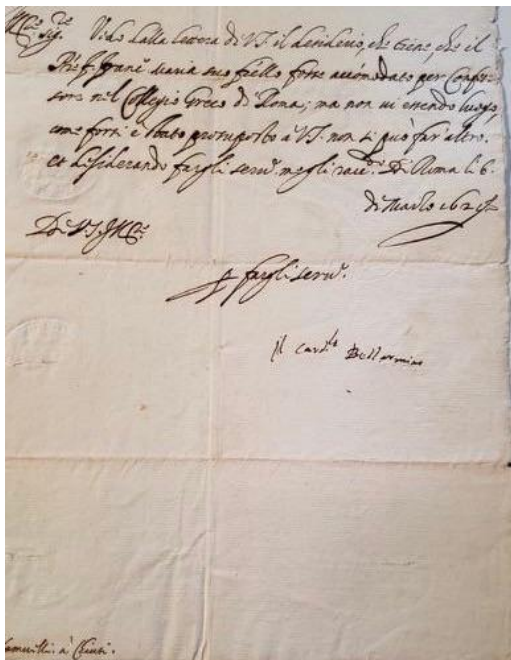 Ill.re Sig.re Vedo dalla lettera di V.S. il desiderio, che tiene, che il
P. Franc.o Maria suo frẽllo fosse accomodato per Confes-
sore nel Collegio Greco di Roma; ma non vi essendo luogo,
come forsi è stato presuposto a V.S. non si può far altro.
et desiderando fargli serv.o megli racc.do Di Roma li 6.
di Marzo
Di V.S. Ill.re
P fargli serv.o
Il Card.le Bellarmino
à Chiusi.